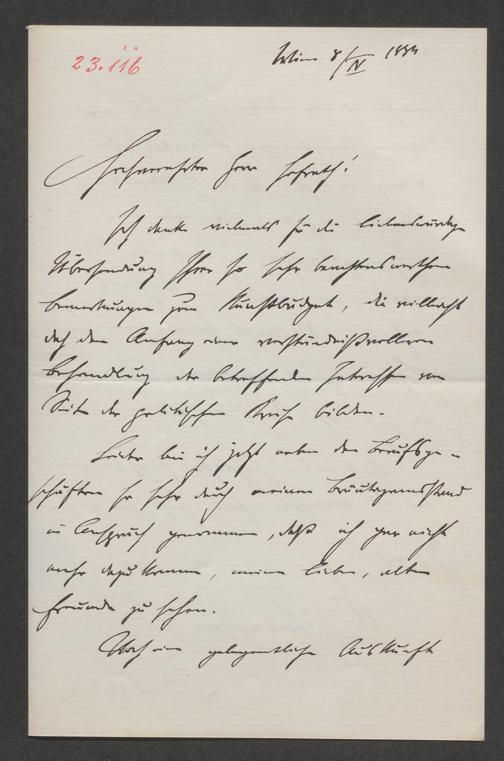 23.116
Wien 8/IV 1884
Hochverehrter Herr Hofrath!
Ich danke vielmals für die liebenswürdige
Übersendung Ihrer so sehr beachtenswerthen
Bemerkungen zum Kunstbudget, die vielleicht
doch den Anfang einer verständnißvolleren
Behandlung der betreffenden Interessen von
Seite der politischen Kreise bilden.
Leider bin ich jetzt neben den Berufsge-
schäften so sehr durch meinen Bräutigamsstand
in Anspruch genommen, daß ich gar nicht
mehr dazu komme, meine lieben, alten
Freunde zu sehen.
Noch eine gelegentliche Auskunft